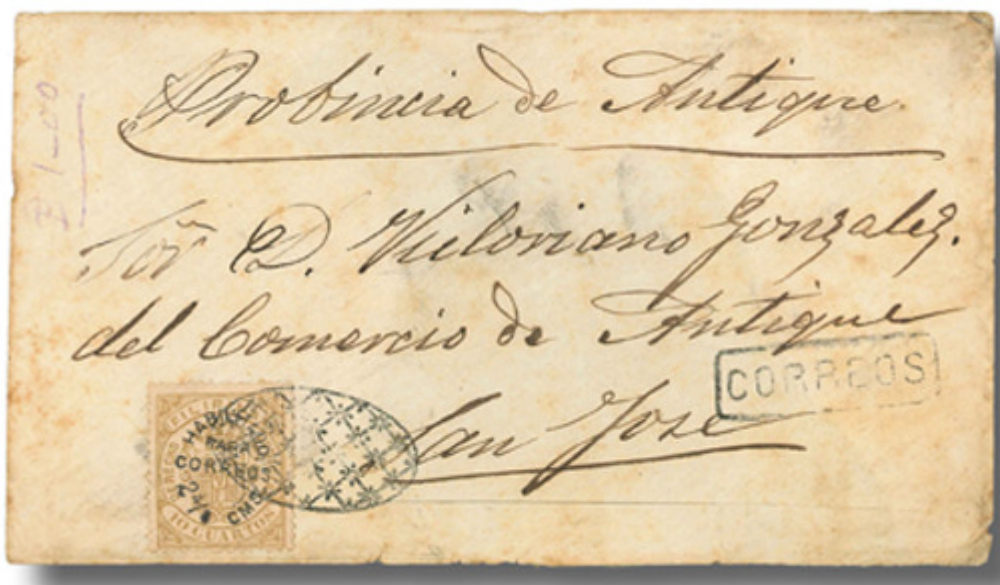 Probincia de Antique.
Sor D. Victoriano Gonzalez.
del Comercio de Antique
CORREOS
San Jose
HABILITADO
PARA
CORREOS
2 4/8 CMS
10 CUARTOS